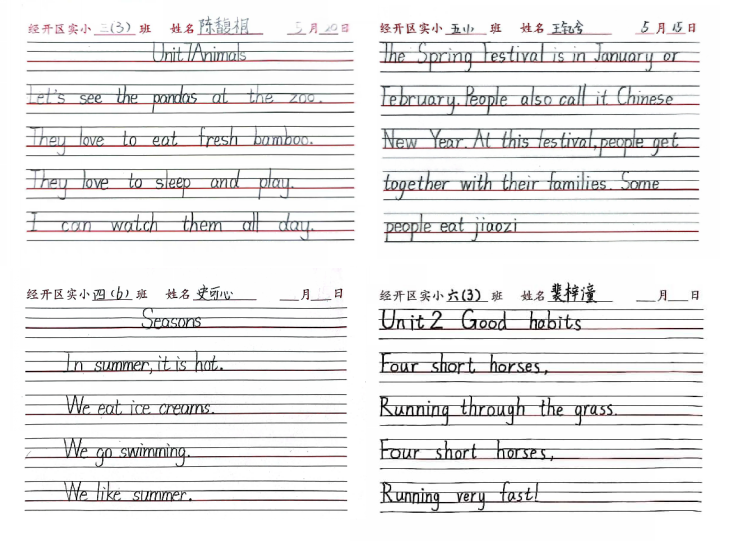 经开区实小 三(3) 班 姓名 陈馥桐 5月20日
Unit7Animals
Let's see the pandas at the zoo.
They love to eat fresh bamboo.
They love to sleep and play.
I can watch them all day.
经开区实小 五小 班 姓名 5月15日
The Spring Festival is in January or
February. People also call it Chinese
New Year. At this festival, people get
together with their families. Some
people eat jiaozi
经开区实小 四(6) 班 姓名 月 日
Seasons
In summer, it is hot.
We eat ice creams.
We go swimming.
We like summer.
经开区实小 六(3) 班 姓名 裴梓潼 月 日
Unit 2 Good habits
Four short horses,
Running through the grass.
Four short horses,
Running very fast!